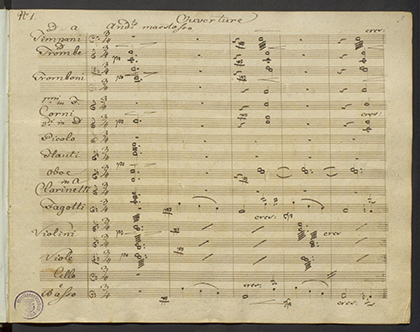 No 1. Ouverture
D a And.te maestoso
Timpani
Trombe
Tromboni
Corni
Picolo
Flauti
Oboe
Clarinetti
Fagotti
Violini
Viole
Cello
Basso
cres:
cres:
cres:
cres
cres:
cres: